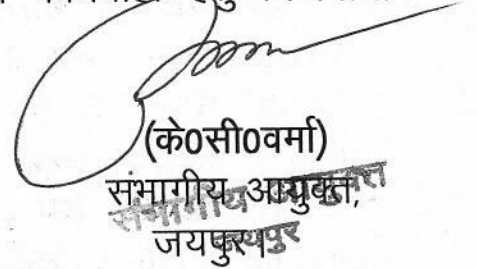 (के0सी0वर्मा)
संभागीय आयुक्त,
जयपुर।
संभागीय आयुक्त
जयपुर